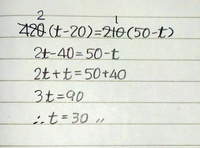 2 1
420(t-20)=210(50-t)
2t-40=50-t
2t+t=50+40
3t=90
∴t=30 〃